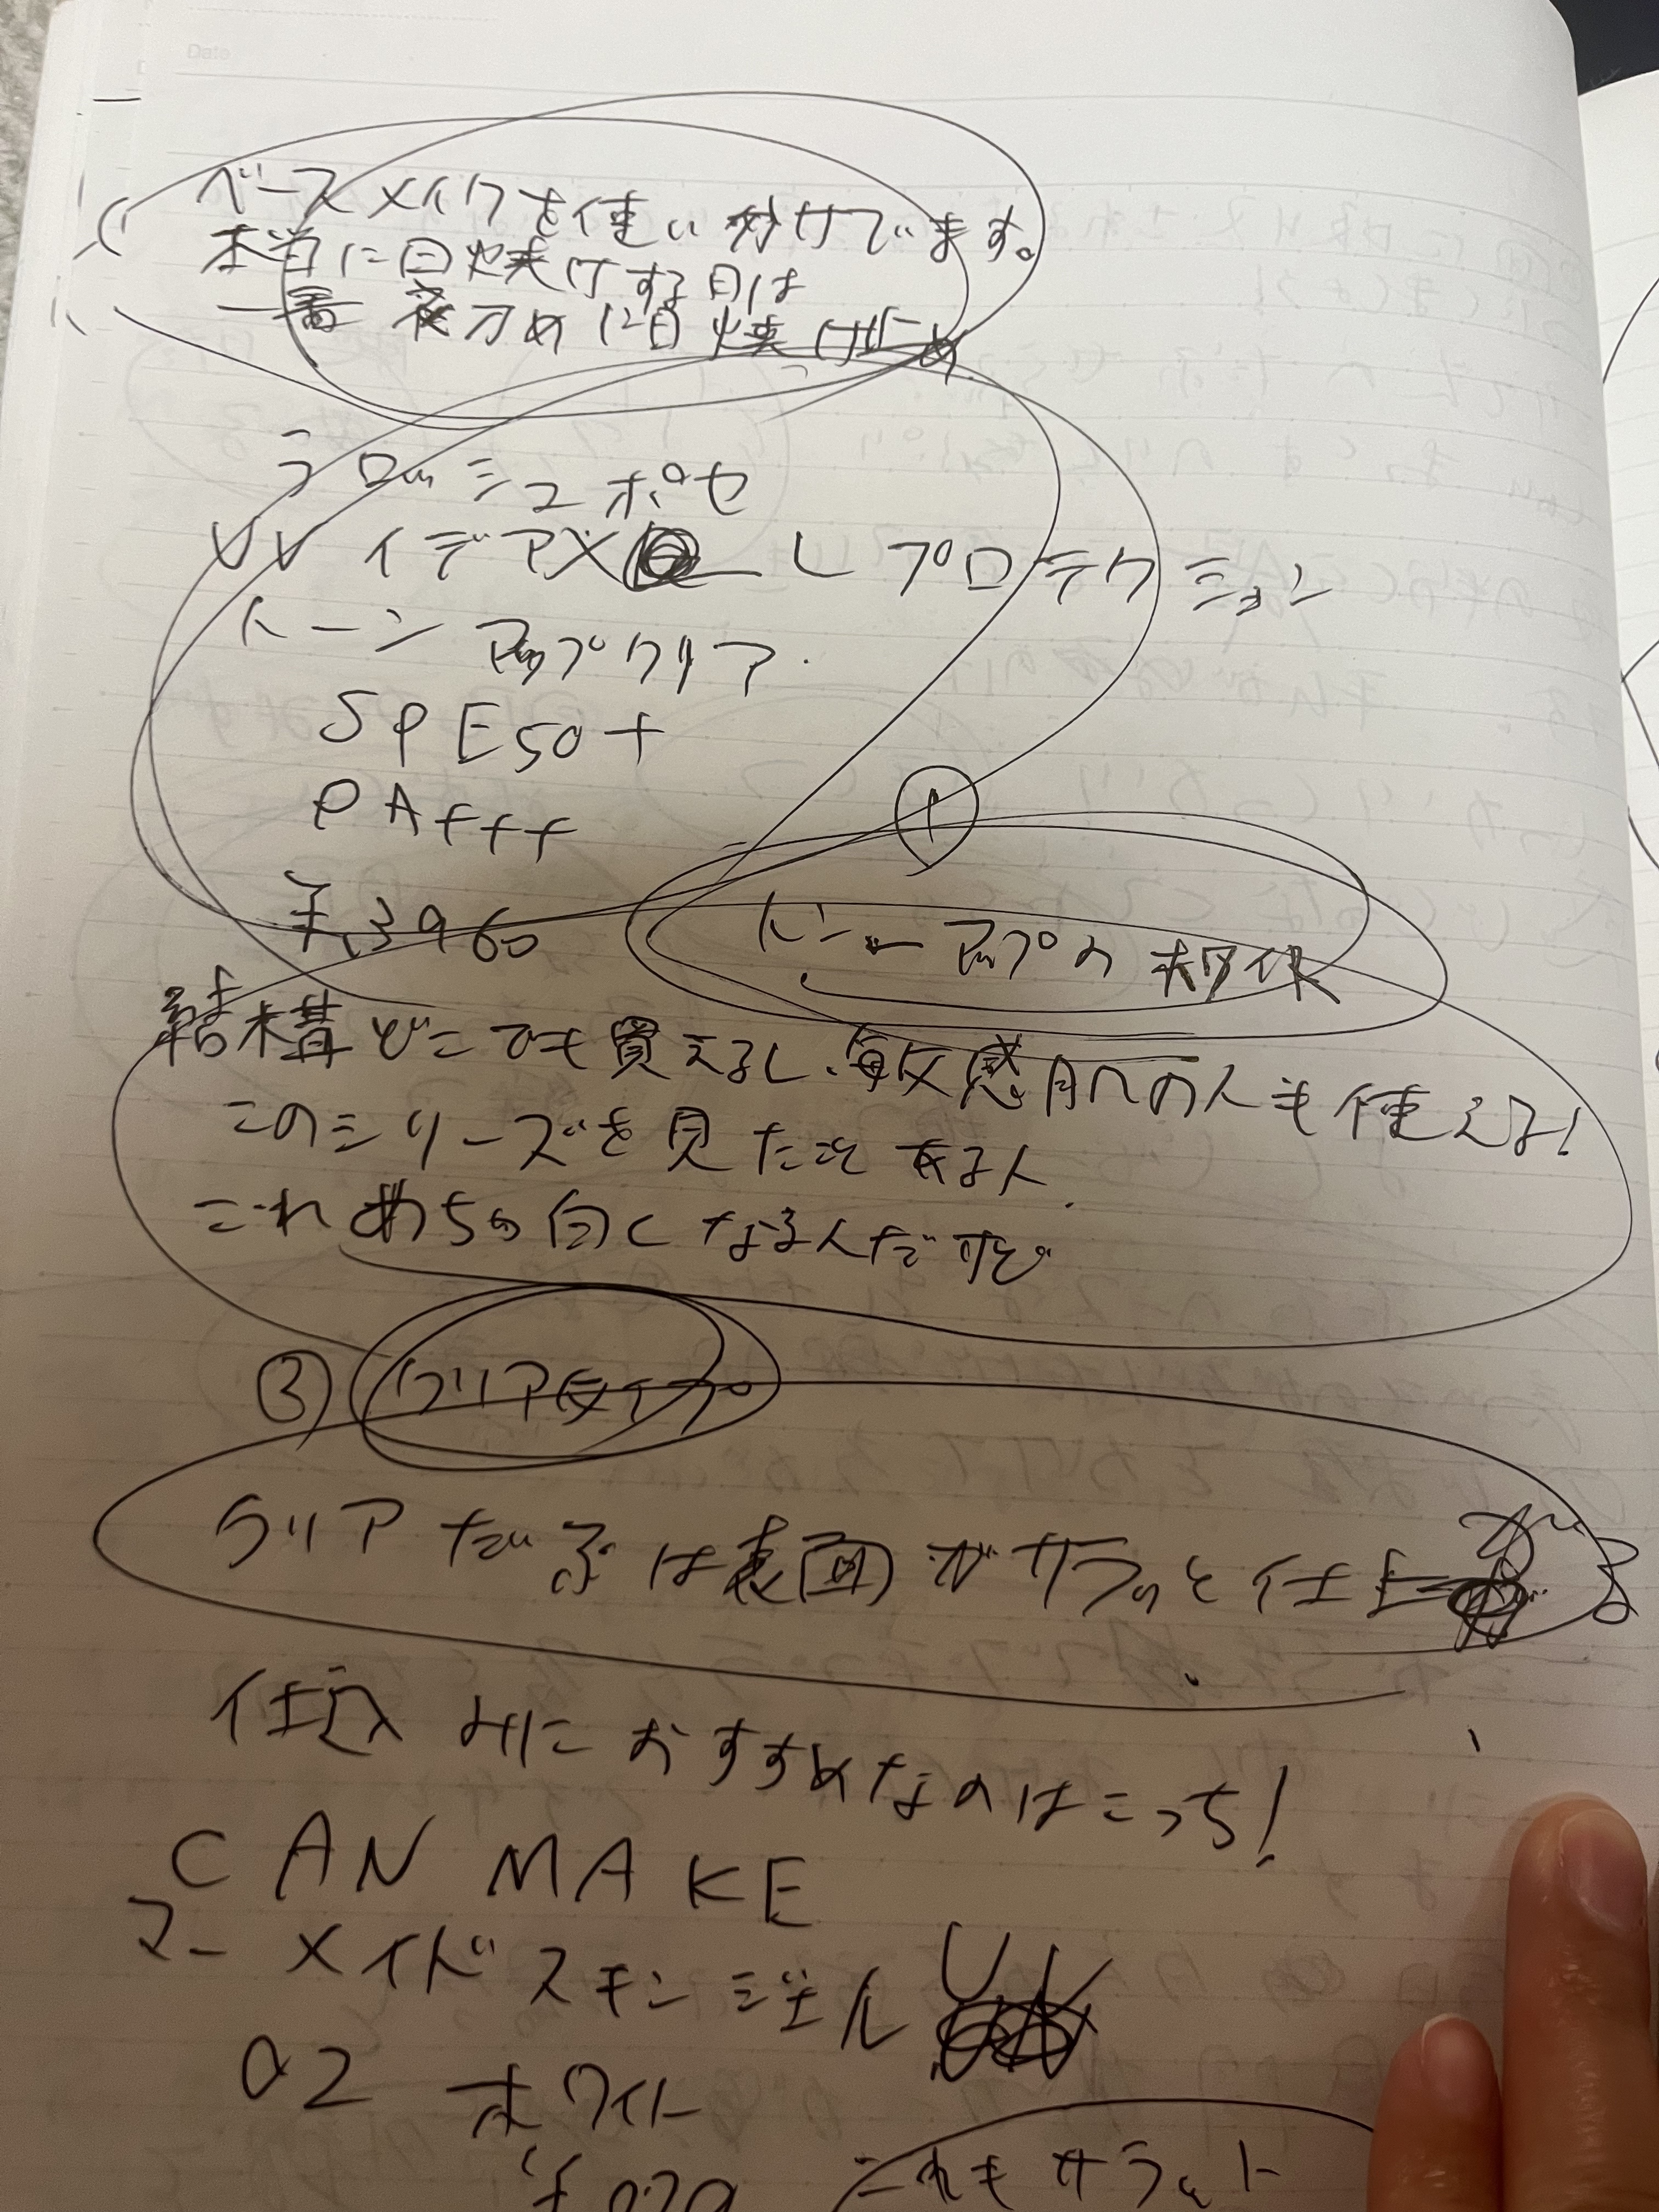 Date
ベースメイクを使い分けています。
本当に日焼けする日は
一番夜 め に日焼け止め
ラロッシュポゼ
UV イデアXL プロテクション
トーンアップクリア
SPE50+
PA+++
¥3960
①
トーンアップの
結構どこでも買えるし、敏感肌の人も使える!
このシリーズを見たことある人
これめちゃ白くなるんだけど
③ クリアタイプ
クリア は表面がサラッと仕上がる
仕込みにおすすめなのはこっち!
CANMAKE
マーメイドスキンジェルUV
02 ホワイト
これもサラッと